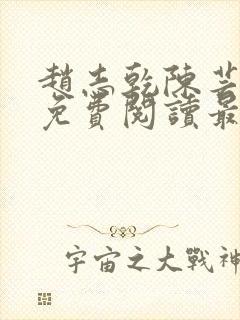 趙志乾陳芸
免費閱讀最
宇宙之大戰神